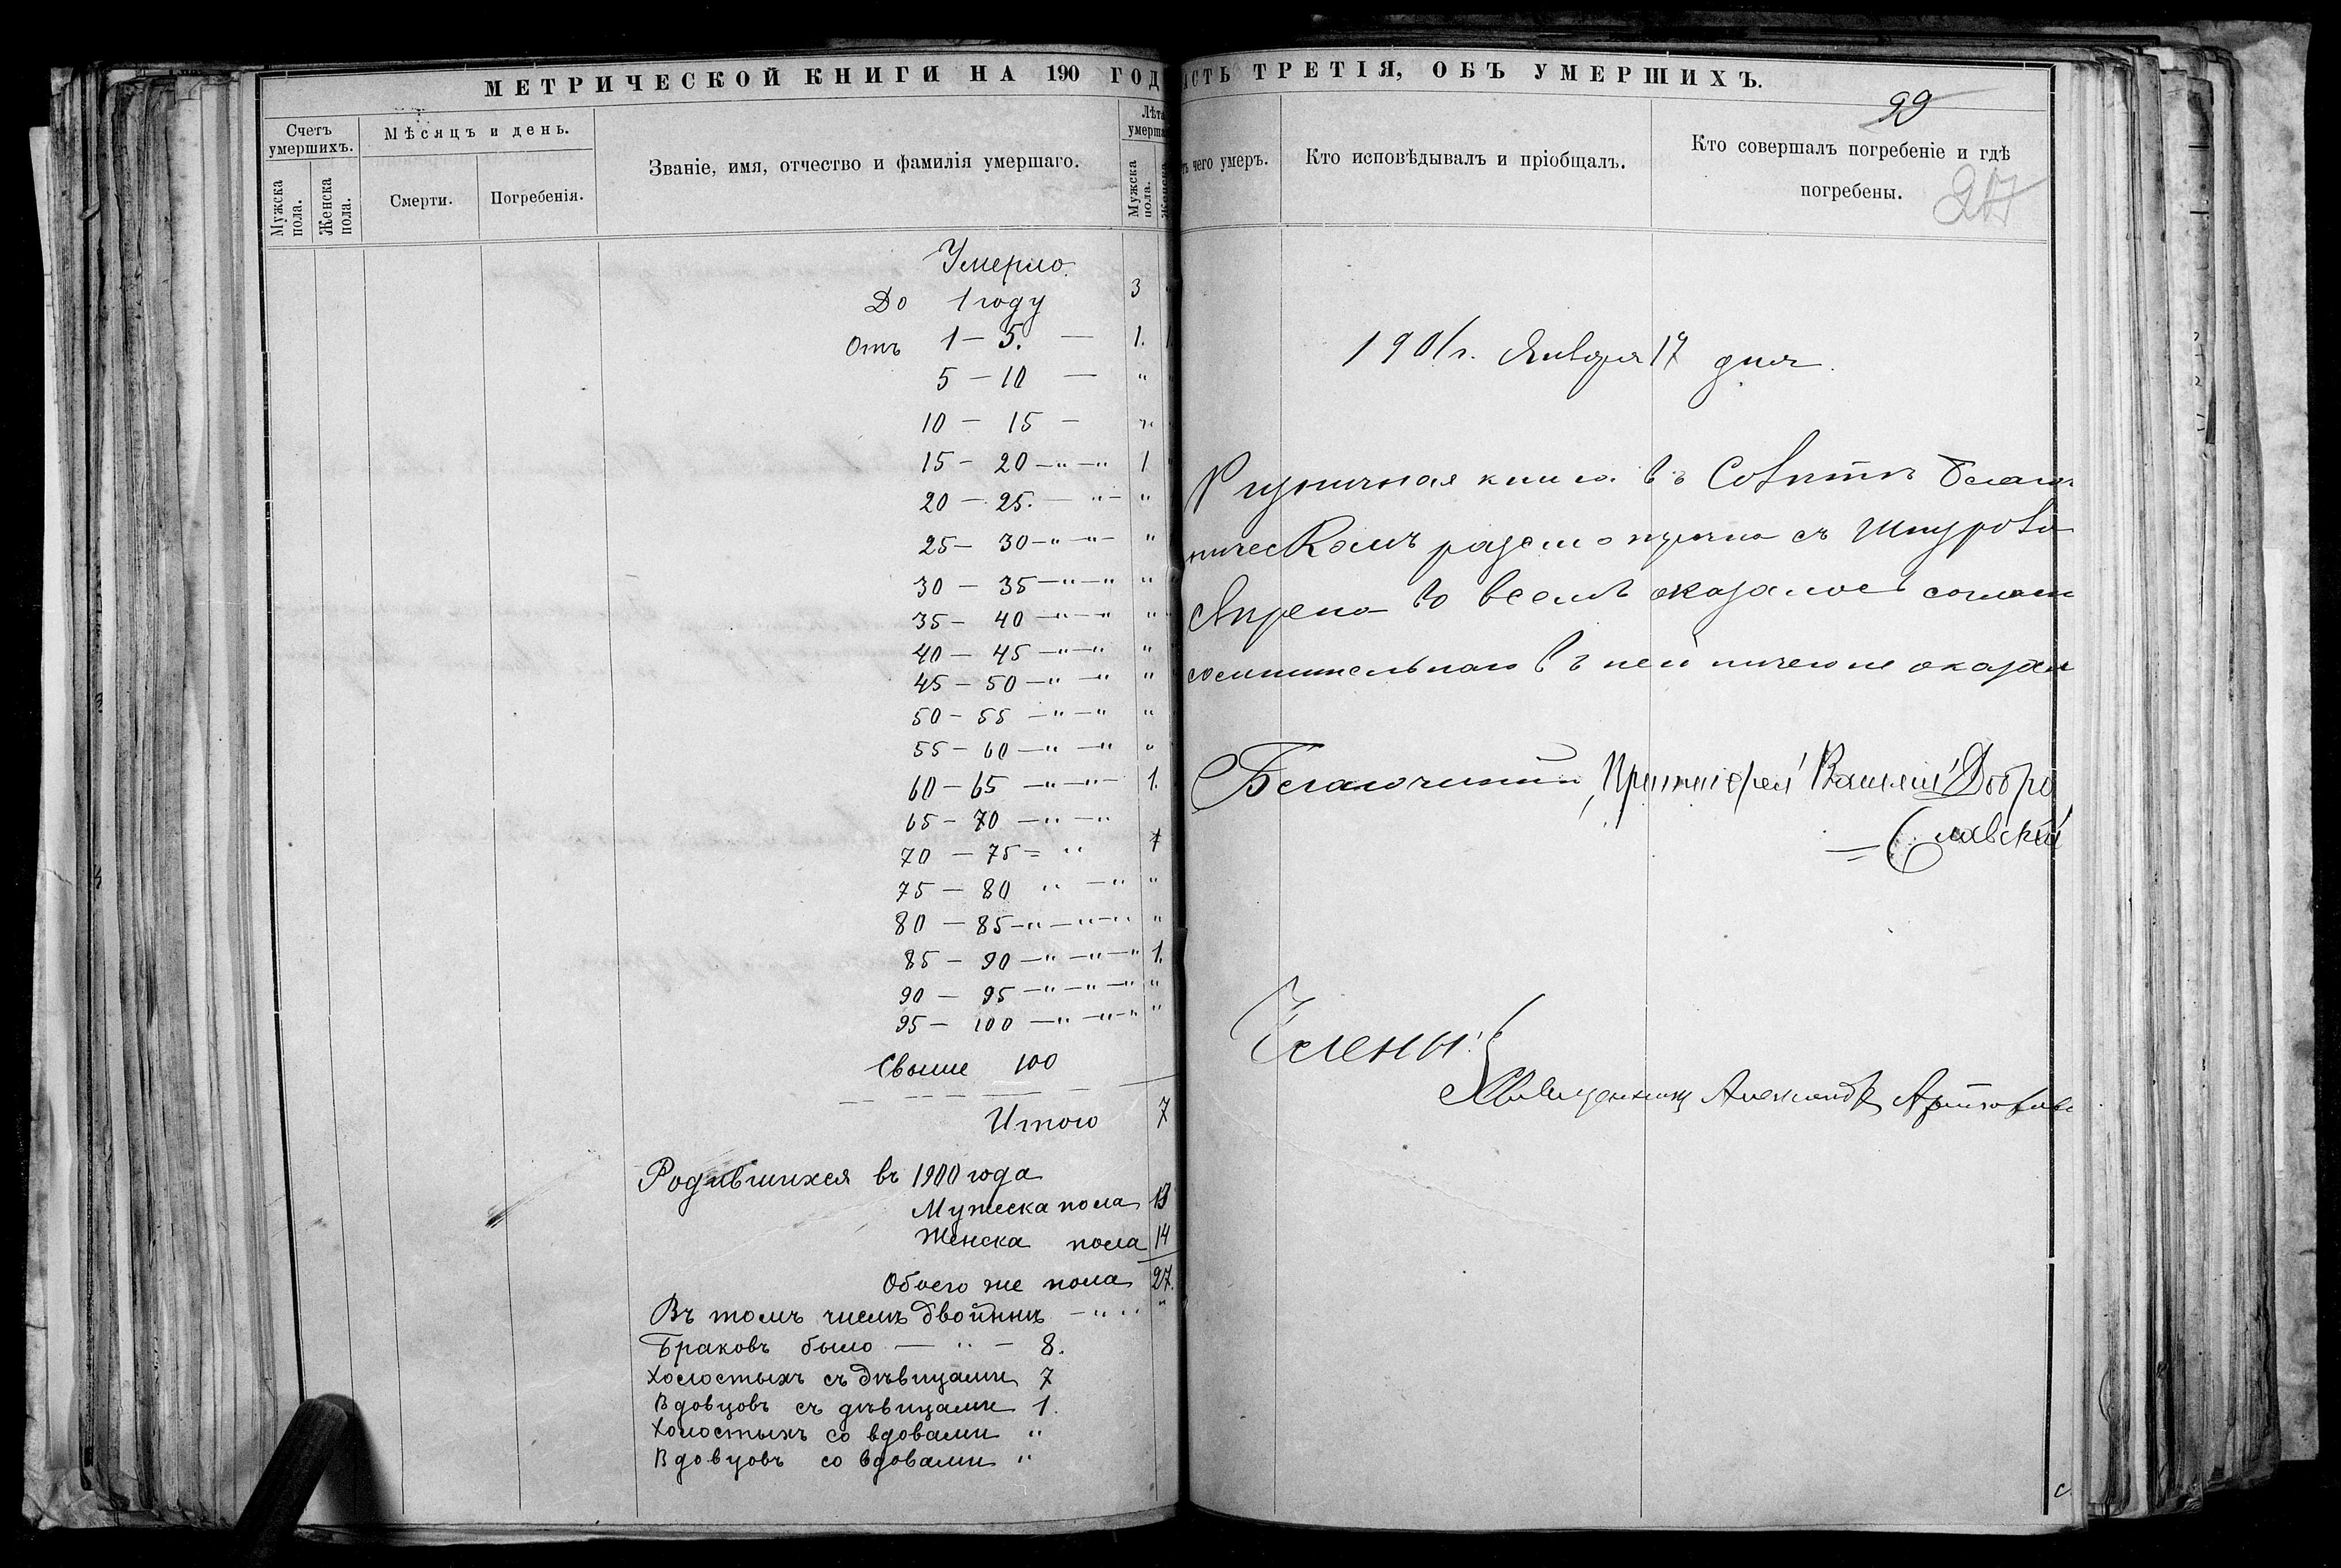 МЕТРИЧЕСКОЙ КНИГИ НА 190 ГОД
Счетъ умершихъ.
Мужска пола.
Женска пола.
Мѣсяцъ и день.
Смерти.
Погребенія.
Званіе, имя, отчество и фамилія умершаго.
Лѣта умерша
Мужска пола.
Женска
Умерло.
До 1 году 3
Отъ 1 — 5. — 1.
5 — 10 — "
10 — 15 — "
15 — 20 —"—" 1
20 — 25. — "— "
25 — 30 —"—"— "
30 — 35 —"—" "
35 — 40 —"—" "
40 — 45 —"—" "
45 — 50 —" —" "
50 — 55 —"—" "
55 — 60 —" —" "
60 — 65 —"—"— 1.
65 — 70 —"—"
70 — 75 = "
75 — 80 " —" "
80 — 85 —"—"—" "
85 — 90 —"—"—" 1.
90 — 95 —"—"—" "
95 — 100 —"—"—" "
Свыше 100
Итого 7
Родившихся въ 1900 года
Мужеска пола 13
Женска пола 14
Обоего же пола 27.
Въ томъ числѣ двойни — " "
Браковъ было — " — 8.
Холостыхъ съ дѣвицами 7
Вдовцовъ съ дѣвицами 1.
Холостыхъ со вдовами "
Вдовцовъ со вдовами "
АСТЬ ТРЕТІЯ, ОБЪ УМЕРШИХЪ.
99
чего умеръ.
Кто исповѣдывалъ и пріобщалъ.
Кто совершалъ погребеніе и гдѣ погребены.
217
1901 г. Января 17 дня.
книга въ Совѣтѣ Благо
ническомъ разсмотрена съ Шнурово
свѣрена во всемъ оказалось соглас
сомнительнаго въ ней ничего не оказал
Благочинный, Протоіерей Василій Добро
= Славскій
Члены:
Священникъ Александръ